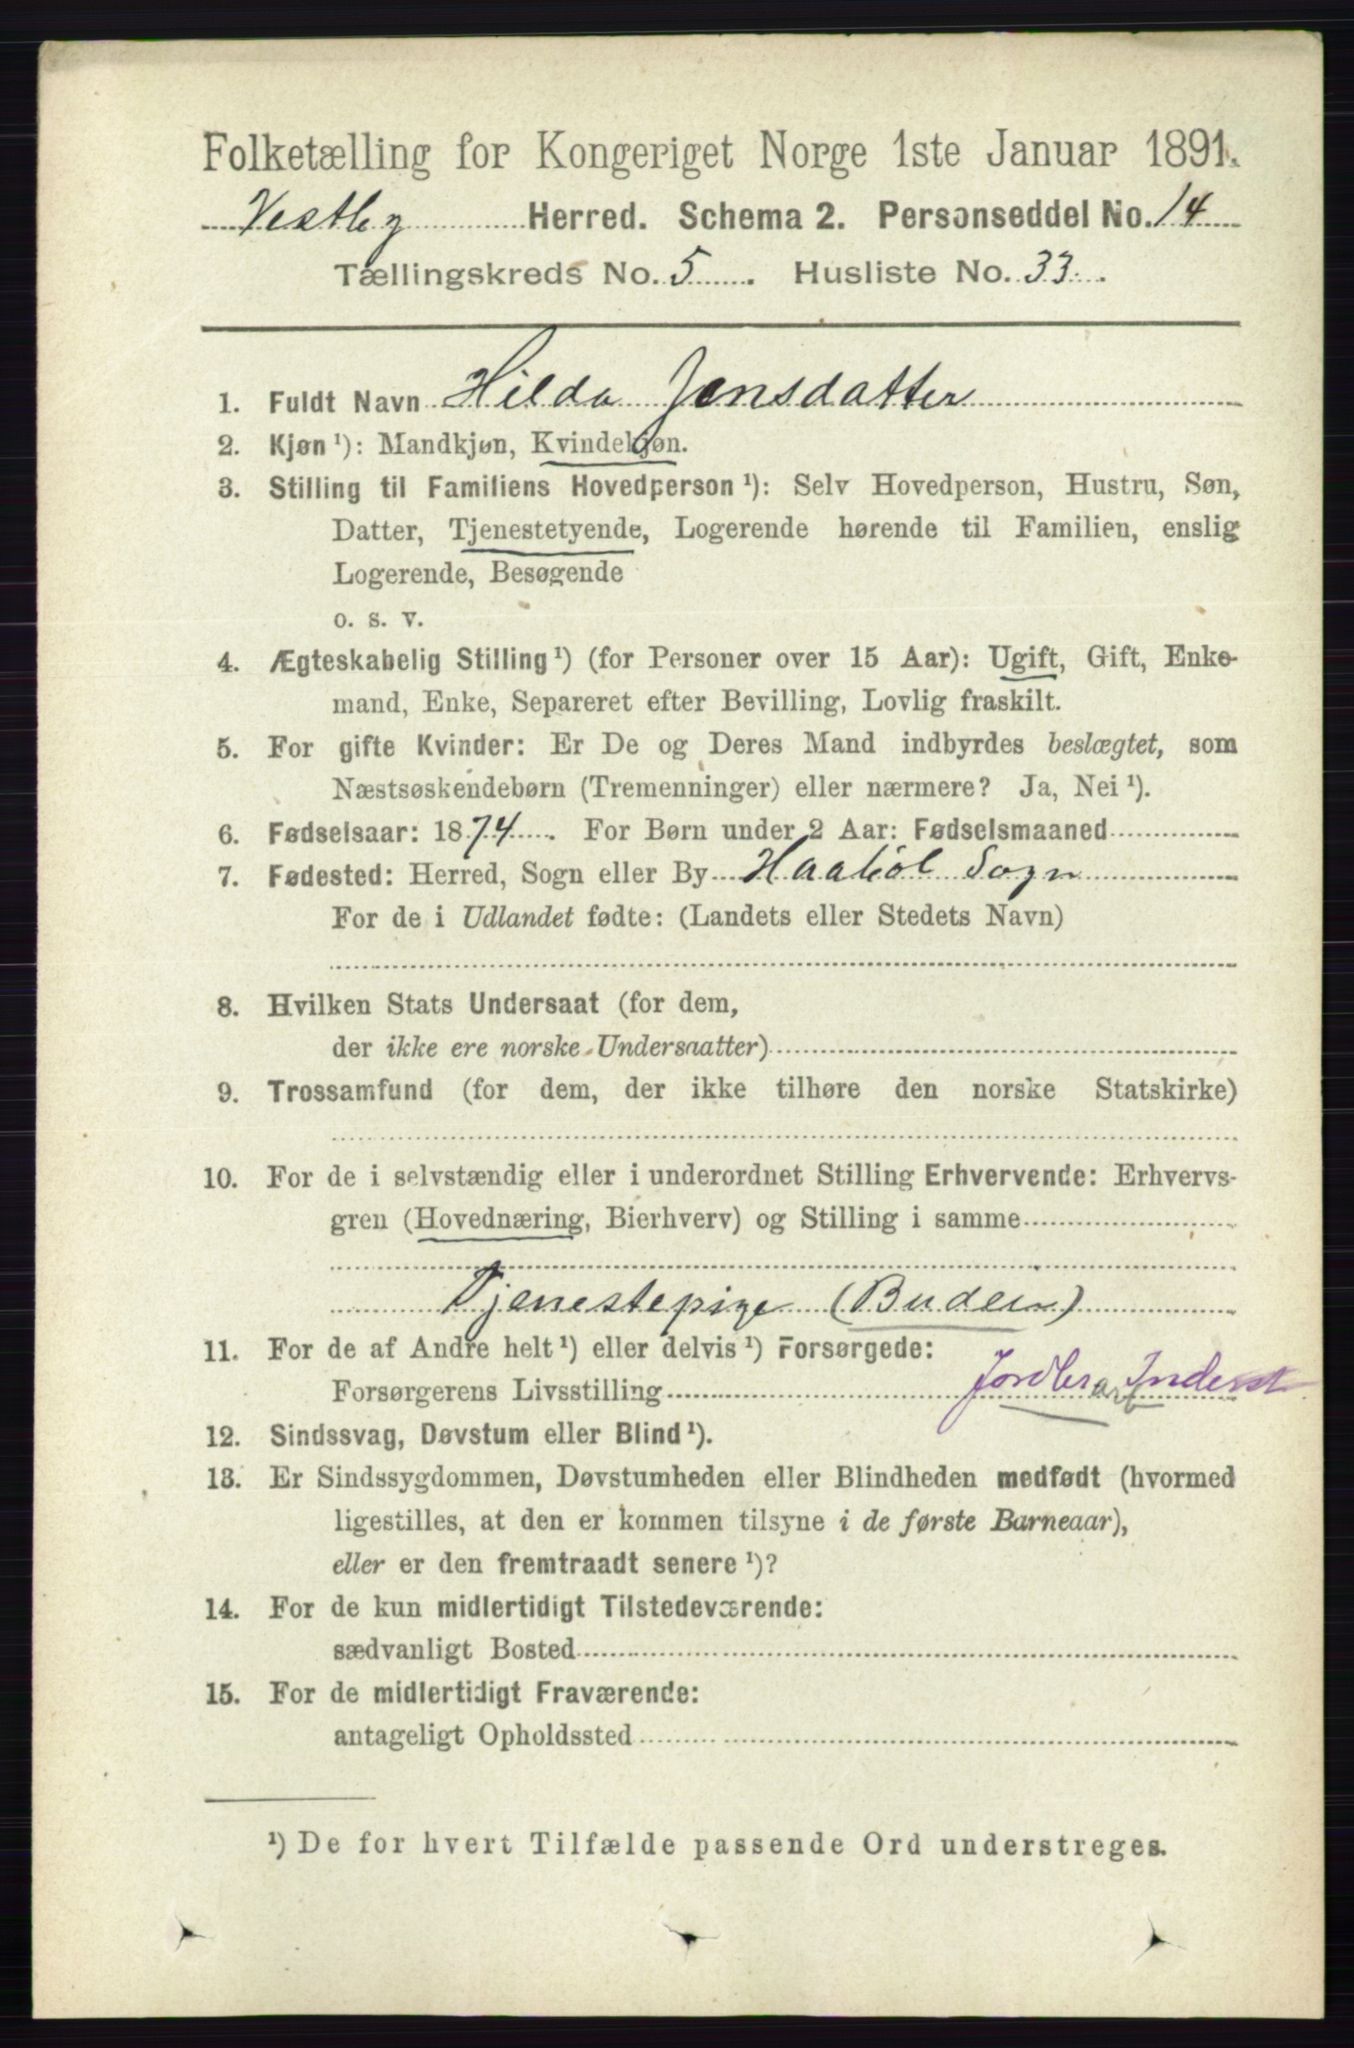 Folketælling for Kongeriget Norge 1ste Januar 1891.
Vestby Herred. Schema 2. Personseddel No. 14
Tællingskreds No. 5. Husliste No. 33.
1. Fuldt Navn Hilda Jensdatter
2. Kjøn ¹): Mandkjøn, Kvindekjøn.
3. Stilling til Familiens Hovedperson ¹): Selv Hovedperson, Hustru, Søn,
Datter, Tjenestetyende, Logerende hørende til Familien, enslig
Logerende, Besøgende
o. s. v.
4. Ægteskabelig Stilling ¹) (for Personer over 15 Aar): Ugift, Gift, Enke-
mand, Enke, Separeret efter Bevilling, Lovlig fraskilt.
5. For gifte Kvinder: Er De og Deres Mand indbyrdes beslægtet, som
Næstsøskendebørn (Tremenninger) eller nærmere? Ja, Nei ¹).
6. Fødselsaar: 1874. For Børn under 2 Aar: Fødselsmaaned
7. Fødested: Herred, Sogn eller By Haabøl Sogn
For de i Udlandet fødte: (Landets eller Stedets Navn)
8. Hvilken Stats Undersaat (for dem,
der ikke ere norske Undersaatter)
9. Trossamfund (for dem, der ikke tilhøre den norske Statskirke)
10. For de i selvstændig eller i underordnet Stilling Erhvervende: Erhvervs-
gren (Hovednæring, Bierhverv) og Stilling i samme
Tjenestepige (Budeie)
11. For de af Andre helt ¹) eller delvis ¹) Forsørgede:
Forsørgerens Livsstilling
12. Sindssvag, Døvstum eller Blind ¹).
13. Er Sindssygdommen, Døvstumheden eller Blindheden medfødt (hvormed
ligestilles, at den er kommen tilsyne i de første Barneaar),
eller er den fremtraadt senere ¹)?
14. For de kun midlertidigt Tilstedeværende:
sædvanligt Bosted
15. For de midlertidigt Fraværende:
antageligt Opholdssted
¹) De for hvert Tilfælde passende Ord understreges.